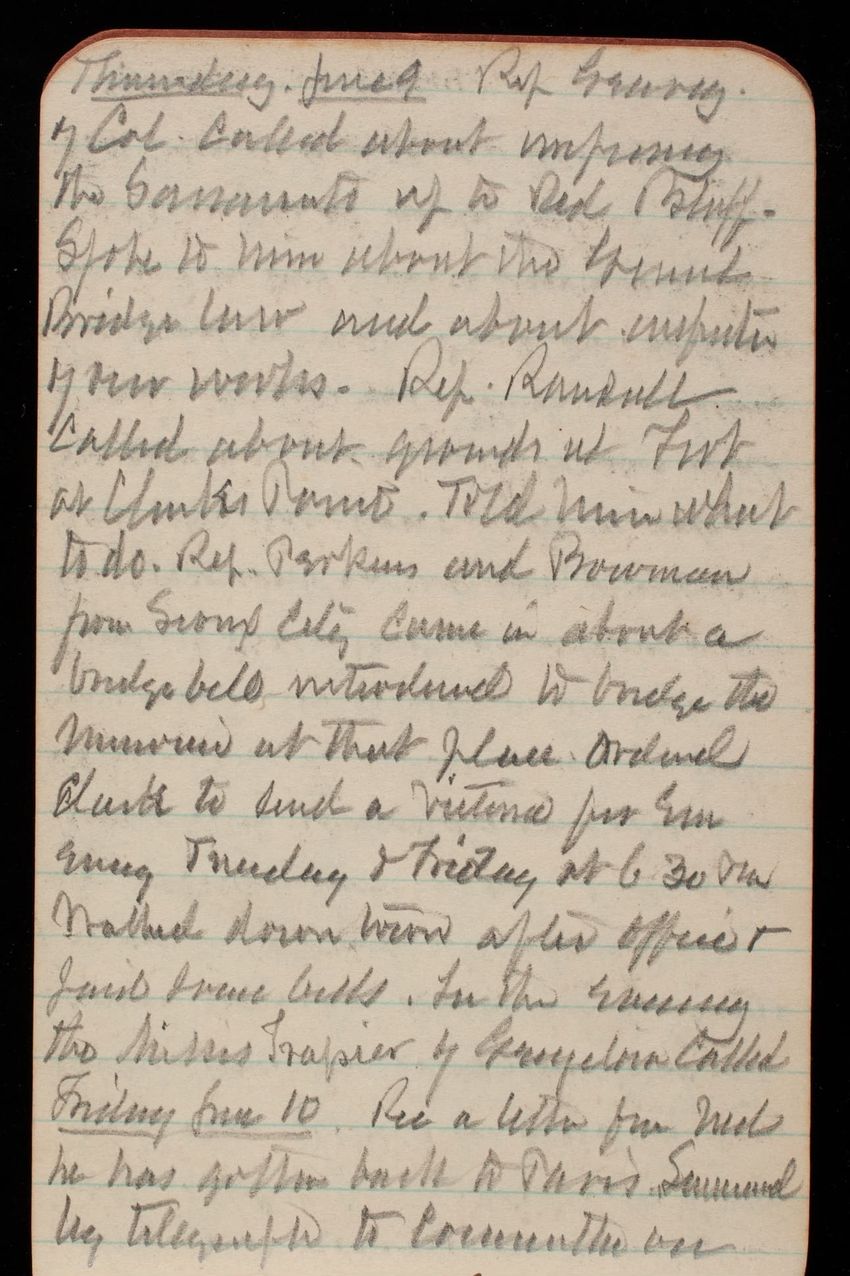 Thursday. June 9 Rep Geary.
of Cal. Called about improving
the Sacramento up to Red Bluff.
Spoke to him about the General
Bridge law and about inspection
of our works. Rep. Randall
Called about grounds at Fort
at Clarks Point. Told him what
to do. Rep. Perkins and Bowman
from Sioux City came in about a
bridge bill introduced to bridge the
Missouri at that place. Ordered
Clark to send a Victoria for Em
every Tuesday & Friday at 6 30 PM
Walked down town after office &
paid some bills. In the evening
the Misses Trapier of Called
Friday June 10. Rec a letter from Ned
he has gotten back to Paris. Summoned
by telegraph to Committee on